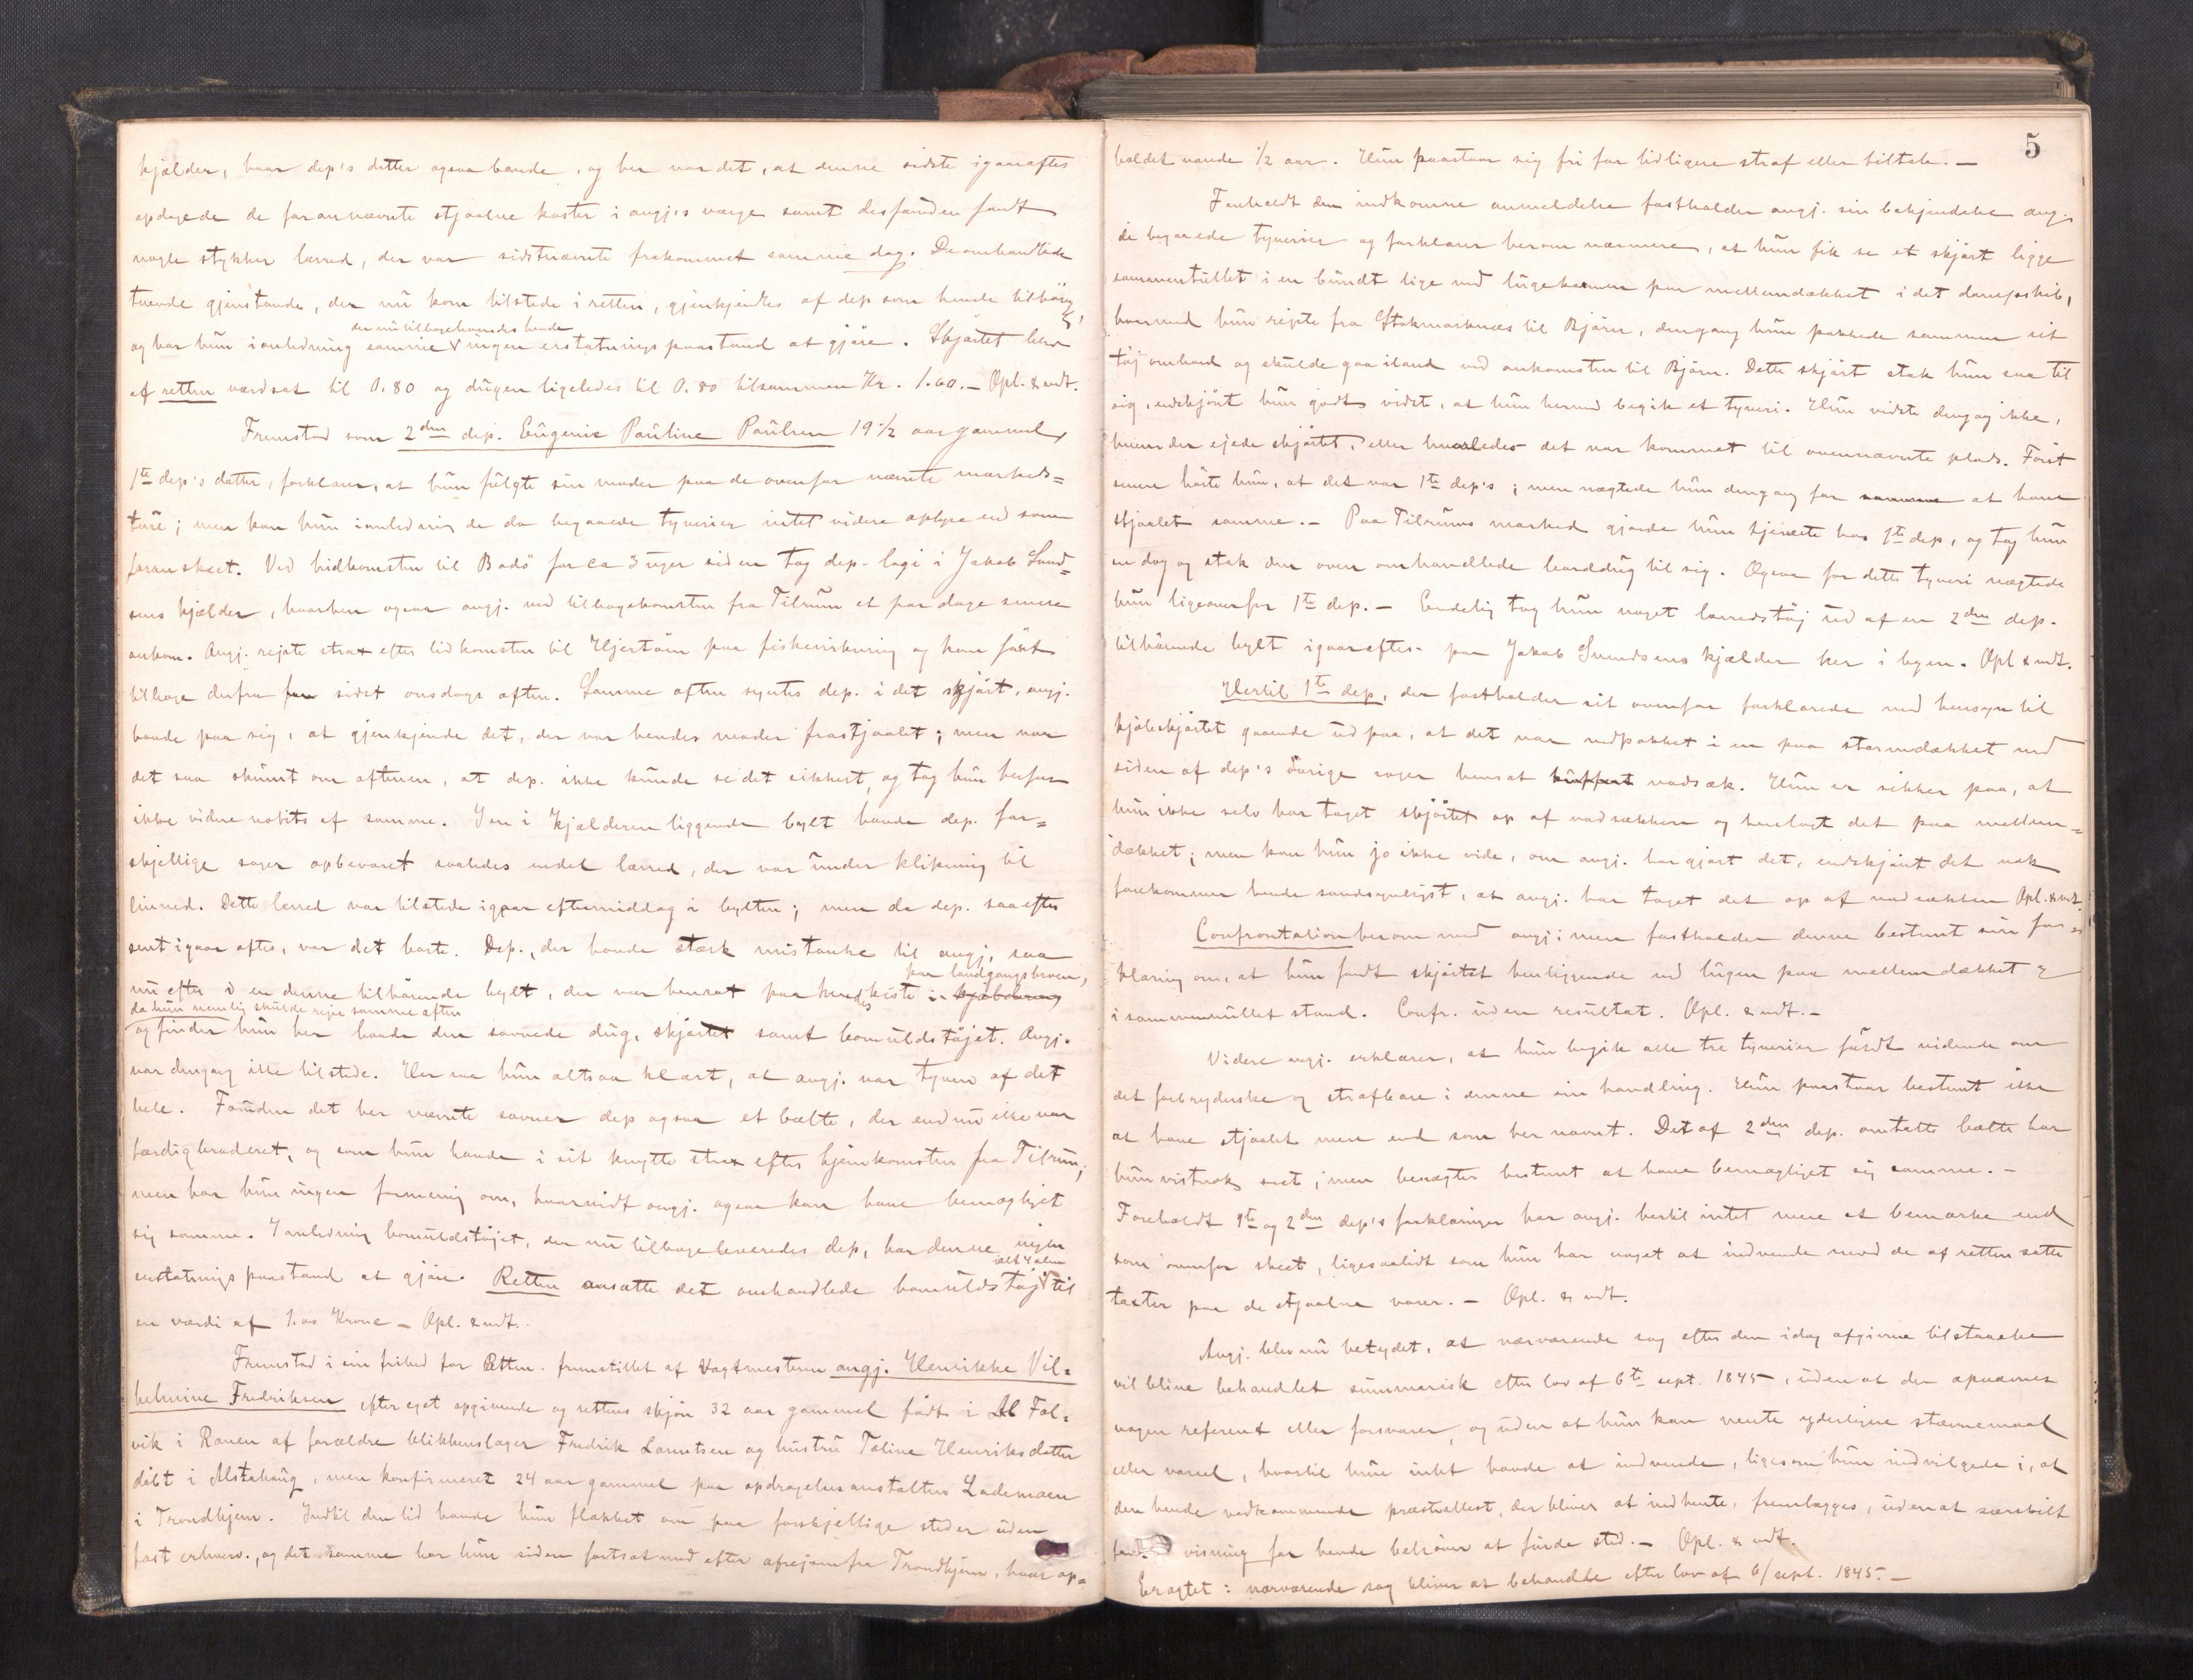 kjælder, hvor dep's datter ogsaa boede, og her var det, at denne sidste igaaraftes
opdagede de foran nævnte stjaalne koster i angj:s værge samt desforuden fandt
nogle stykker lærred, der var sidstnævnte frakommet samme dag. De omhandlede
tvende gjenstande, der nu kom tilstede i retten, gjenkjendtes af dep som hende tilhörig,
der nu tilbageleveredes hende
og har hun i anledning samme ingen erstatningspaastand at gjöre. Skjörtet blev
af retten værdsat til 0.80 og dugen ligeledes til 0.80 tilsammen Kr. 1.60. – Opl. & vedt.
Fremstod som 2den dep. Eugenie Pauline Paulsen 19 1/2 aar gammel,
1te dep's datter, forklarer, at hun fulgte sin moder paa de ovenfor nævnte markeds=
ture; men kan hun i anledning de da begaaede tyverier intet videre oplyse end som
foran skeet. Ved hidkomsten til Bodö for ca 3 uger siden tog dep. logi i Jakob Sund=
sens kjælder, hvorhen ogsaa angj. ved tilbagekomsten fra Tilrum et par dage senere
ankom. Angj. rejste strax efter hidkomsten til Hjertöen paa fiskevirkning og kom först
tilbage derfra sidst onsdags aften. Samme aften syntes dep. i det skjört, angj.
havde paa sig, at gjenkjende det, der var hendes moder frastjaalet; men var
det saa skumt om aftenen, at dep. ikke kunde se det sikkert, og tog hun herfor
ikke videre notits af samme. I en i kjælderen liggende bylt havde dep. for=
skjellige sager opbevaret saaledes endel lærred, der var under klipning til
linned. Dette lærred var tilstede igaar eftermiddag i bylten; men da dep. saa efter
sent igaar aftes, var det borte. Dep., der havde stærk mistanke til angj, saa
paa landgangsbroen,
nu efter i en denne tilhörende bylt, der var hensat paa hendes kiste
da hun nemlig skulde rejse samme aften
og finder hun her baade den savnede dug, skjörtet samt bomuldstöjet. Angj.
var dengang ikke tilstede. Her saa hun altsaa klart, at angj. var tyven af det
hele. Foruden det her nævnte savner dep ogsaa et bælte, der endnu ikke var
færdigbroderet, og som hun havde i sit knytte strax efter hjemkomsten fra Tilrum;
men har hun ingen formening om, hvorvidt angj. ogsaa kan have bemægtiget
sig samme. I anledning bomuldstöjet, der nu tilbageleveredes dep, har denne ingen
erstatningspaastand at gjöre. Retten ansatte det omhandlede bomuldstöj til
en værdi af 1.00 Krone – Opl. & vedt.
Fremstod i sin frihed for Retten fremstillet af Vagtmesteren angj. Henrikke Vil=
helmine Fredriksen efter eget opgivende og rettens skjön 32 aar gammel født i
vik i Ranen af forældre blikkenslager Fredrik Larentsen og hustru Taline Henriksdatter
döbt i Alstahaug, men konfirmeret 24 aar gammel paa opdragelsesanstalten Lademoen
i Trondhjem. Indtil den tid havde hun flakket om paa forskjellige steder uden
fast erhverv, og det samme har hun siden fortsat med efter afrejsen fra Trondhjem, hvor op=
5
holdet varede 1/2 aar. Hun paastaar sig fri for tidligere straf eller tiltale. –
Foreholdt den indkomne anmeldelse fastholder angj. sin bekjendelse ang.
de begaaede tyverier og forklarer herom nærmere, at hun fik se et skjört ligge
sammentullet i en bundt lige ved lugekarmen paa mellemdækket i det dampskib,
hvormed hun rejste fra Stokmarknæs til Bjørn, dengang hun pakkede sammen sit
töj ombord og skulde gaa iland ved ankomsten til Bjørn. Dette skjört stak hun saa til
sig, endskjönt hun godt vidste, at hun hermed begik et tyveri. Hun vidste dengang ikke,
hvem der ejede skjörtet, eller hvorledes det var kommet til ovennævnte plads. Först
senere hörte hun, at det var 1te dep's; men nægtede hun dengang for at have
stjaalet samme. – Paa Tilrums marked gjorde hun tjeneste hos 1te dep, og tog hun
en dag og stak den oven omhandlede borddug til sig. Ogsaa for dette tyveri nægtede
hun ligeoverfor 1te dep. – Endelig tog hun noget lærredstöj ud af en 2den dep.
tilhörende bylt igaaraftes paa Jakob Sundsens kjælder her i byen. Opl & vedt.
Hertil 1te dep, der fastholder sit ovenfor forklarede med hensyn til
kjoleskjörtet gaaende ud paa, at det var nedpakket i en paa stormdækket ved
siden af dep's övrige sager hensat vadsæk. Hun er sikker paa, at
hun ikke selv har taget skjörtet op af vadsækken og henlagt det paa mellem=
dækket; men kan hun jo ikke vide, om angj. har gjort det, endskjönt det nok
forekommer hende sandsynligst, at angj. har taget det op af vadsækken Opl. & vedt.
Confrontation herom med angj; men fastholder denne bestemt sin for=
klaring om, at hun fandt skjörtet henliggende ved lugen paa mellemdækket &
i sammentullet stand. Confr. uden resultat. Opl. & vedt. –
Videre angj. erklærer, at hun begik alle tre tyverier fuldt vidende om
det forbryderske og strafbare i denne sin handling. Hun paastaar bestemt ikke
at have stjaalet mere end som her nævnt. Det af 2den dep. omtalte bælte har
hun vistnok seet; men benægter bestemt at have bemægtiget sig samme. –
Foreholdt 1te og 2den dep's forklaringer har angj. hertil intet mere at bemærke end
som ovenfor skeet, ligesaalidt som hun har noget at indvende mod de af retten satte
taxter paa de stjaalne varer. – Opl. & vedt.
Angj. blev nu betydet, at nærværende sag efter den idag afgivne tilstaaelse
vil blive behandlet summarisk efter lov af 6te sept. 1845, uden at der opnævnes
nogen referent eller forsvarer, og uden at hun kan vente yderligere stævnemaal
eller varsel, hvortil hun intet havde at indvende, ligesom hun indvilgede i, at
den hende vedkommende præsteattest, der bliver at indhente, fremlægges, uden at særskilt
visning for hende behöver at finde sted. – Opl. & vedt.
Eragtet: nærværende sag bliver at behandle efter lov af 6/sept. 1845. –